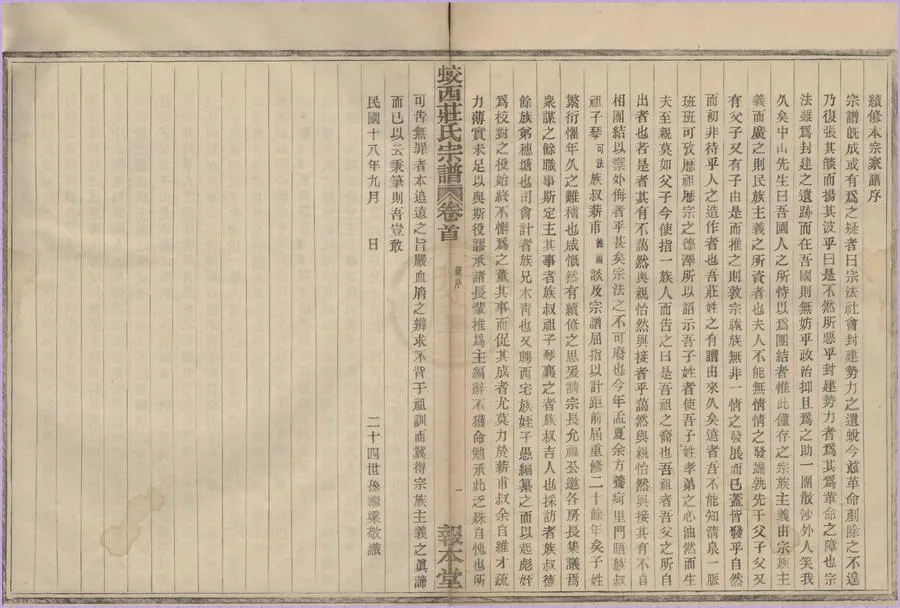 續修本宗家譜序
宗譜旣成或有爲之疑者曰宗法社會封建勢力之遺蛻今茲革命剷除之不遑
乃復張其燄而揚其波乎曰是不然所惡乎封建勢力者爲其爲革命之障也宗
法雖爲封建之遺跡而在吾國則無妨乎政治抑且爲之助一團散沙外人笑我
久矣中山先生曰吾國人之所恃以爲團結者惟此僅存之宗族主義由宗族主
義而廣之則民族主義之所資者也夫人不能無情情之發端孰先于父子父又
有父子又有子由是而推之則敦宗睦族無非一情之發展而已蓋皆發乎自然
而初非待乎人之造作者也吾莊姓之有譜由來久矣遠者吾不能知淸泉一脈
班班可攷歷祖歷宗之德澤所以詔示吾子姓者使吾子姓孝弟之心油然而生
夫至親莫如父子今使指一族人而吿之曰是吾祖之裔也吾祖者吾父之所自
出者也若是者其有不藹然與親怡然與接者乎藹然與親怡然與接其有不自
相團結以禦外侮者乎甚矣宗法之不可廢也今年孟夏余方養疴里門晤族叔
祖子琴可法族叔薪甫談及宗譜屈指以計距前屆重修二十餘年矣子姓
繁衍懼年久之難稽也咸慨然有續修之思爰請宗長允福丞邀各房長集議焉
衆謀之餘職事斯定主其事者族叔祖子琴襄之者族叔吉人也採訪者族叔德
餘族弟穗塘也司會計者族兄木靑也又聘西宅族姪子愚編纂之而以起彪姪
爲校對之役始終不懈爲之董其事而促其成者尤莫力於薪甫叔余自維才疏
力薄實未足以與斯役謬承諸長輩推爲主編辭不獲命勉承此乏殊自愧也所
可吿無罪者本追遠之旨嚴血脗之辨求不背于祖訓而冀得宗族主義之眞諦
而已以云秉筆則吾豈敢
民國十八年九月　日
二十四世孫繼梁敬識
蛟西莊氏宗譜
卷首
新序
一
報本堂